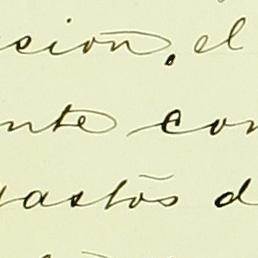 sion, el
nte con
gastos d